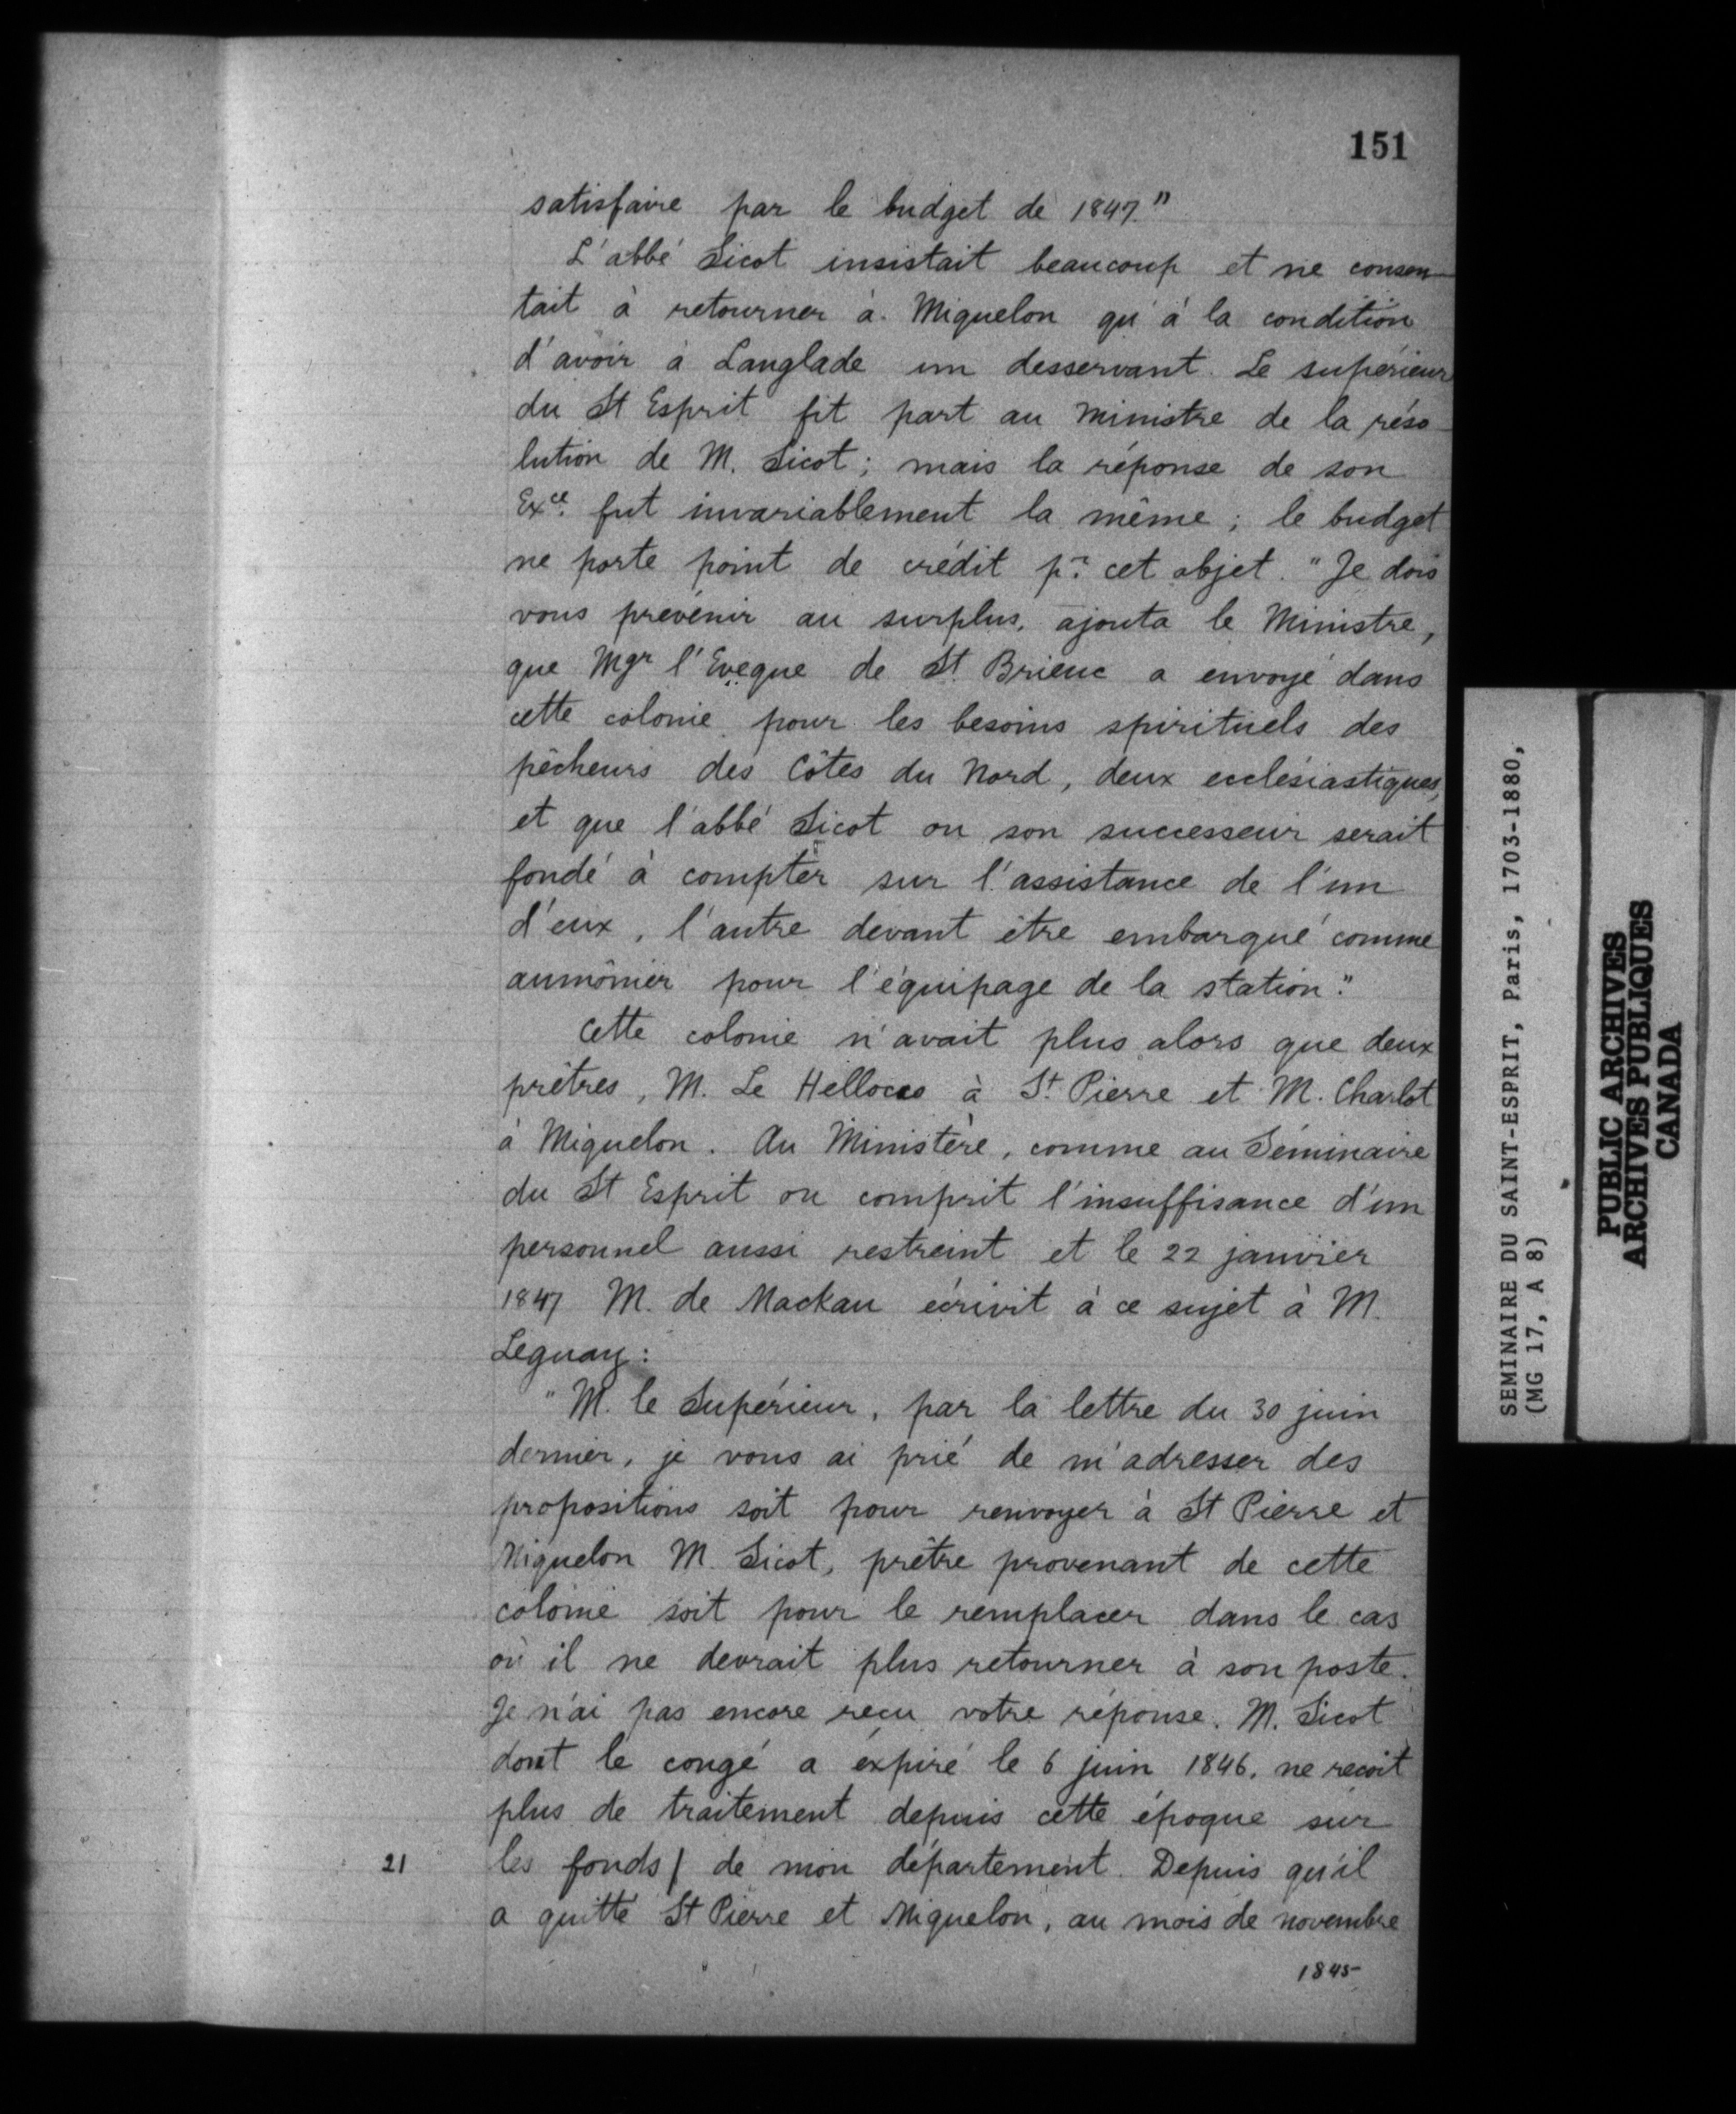 151
satisfaire par le budget de 1847."
L'abbé Sicot insistait beaucoup et ne consen-
tait à retourner à Miquelon qu'à la condition
d'avoir à Langlade un desservant. Le supérieur
du St Esprit fit part au Ministre de la réso-
lution de M. Sicot; mais la réponse de son
Exce. fut invariablement la même; le budget
ne porte point de crédit pr. cet objet. "Je dois
vous prévenir au surplus, ajouta le Ministre,
que Mgr l'Eveque de St. Brieuc a envoyé dans
cette colonie pour les besoins spirituels des
pêcheurs des Côtes du Nord, deux ecclésiastiques,
et que l'abbé Sicot ou son successeur serait
fondé à compter sur l'assistance de l'un
d'eux, l'autre devant être embarqué comme
aumônier pour l'équipage de la station."
Cette colonie n'avait plus alors que deux
prêtres, M. Le Helloco à St. Pierre et M. Charlot
à Miquelon. Au Ministère, comme au Séminaire
du St Esprit on comprit l'insuffisance d'un
personnel aussi restreint et le 22 janvier
1847 M. de Mackau écrivit à ce sujet à M.
Leguay:
"M. le Supérieur, par la lettre du 30 juin
dernier, je vous ai prié de m'adresser des
propositions soit pour renvoyer à St Pierre et
Miquelon M. Sicot, prêtre provenant de cette
colonie soit pour le remplacer dans le cas
où il ne devrait plus retourner à son poste.
Je n'ai pas encore reçu votre réponse. M. Sicot
dont le congé a expiré le 6 juin 1846, ne reçoit
plus de traitement depuis cette époque sur
21 les fonds / de mon département. Depuis qu'il
a quitté St Pierre et Miquelon, au mois de novembre
1845
SEMINAIRE DU SAINT-ESPRIT, Paris, 1703-1880,
(MG 17, A 8)
PUBLIC ARCHIVES
ARCHIVES PUBLIQUES
CANADA